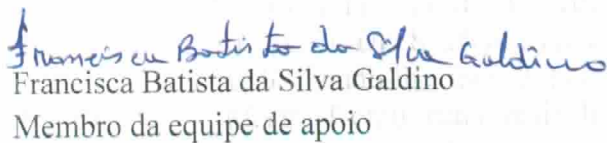 Francisca Batista da Silva Galdino
Francisca Batista da Silva Galdino
Membro da equipe de apoio